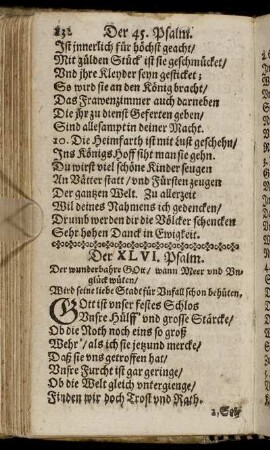 132 Der 45. Psalm.
Ist jnnerlich für höchst geacht/
Mit gülden Stück ist sie geschmücket/
Und jhre Kleyder seyn gesticket;
So wird sie an den König bracht/
Das Frawenzimmer auch darneben
Die jhr zu dienst Geferten geben/
Sind allesampt in deiner Macht.
10. Die Heimfarth ist mit Lust geschehn/
Ins Königs Hoff siht man sie gehn.
Du wirst viel schöne Kinder seugen
An Vätter statt/ und Fürsten zeugen
Der gantzen Welt. Zu allerzeit
Wil deines Nahmens ich gedencken/
Drumb werden dir die Völcker schencken
Sehr hohen Danck in Ewigkeit.
Der XLVI. Psalm.
Der wunderbahre GOtt/ wann Meer und Un-
glück wüten/
Wird seine liebe Stadt für Unfall schon behüten.
GOtt ist unser festes Schlos
Unsre Hülff' und grosse Stärcke/
Ob die Noth noch eins so groß
Wehr'/ als ich sie jetzund mercke/
Daß sie uns getroffen hat/
Unsre Furcht ist gar geringe/
Ob die Welt gleich untergienge/
Finden wir doch Trost und Rath.